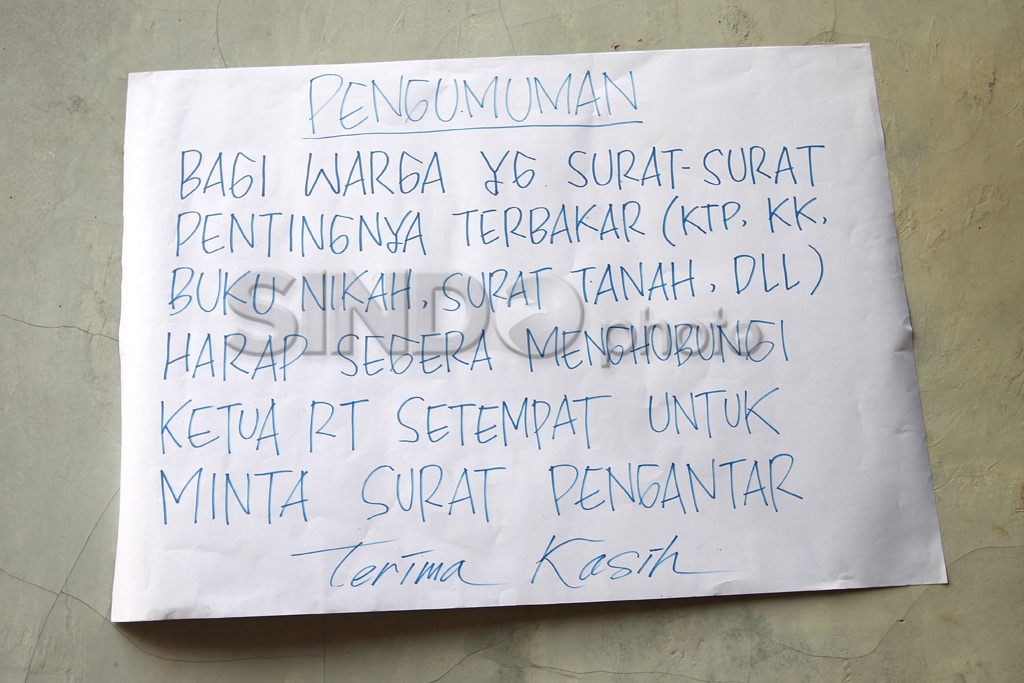 PENGUMUMAN
BAGI WARGA YG SURAT-SURAT
PENTINGNYA TERBAKAR (KTP, KK,
BUKU NIKAH, SURAT TANAH, DLL)
SINDO photo
HARAP SEGERA MENGHUBUNGI
KETUA RT SETEMPAT UNTUK
MINTA SURAT PENGANTAR
Terima Kasih